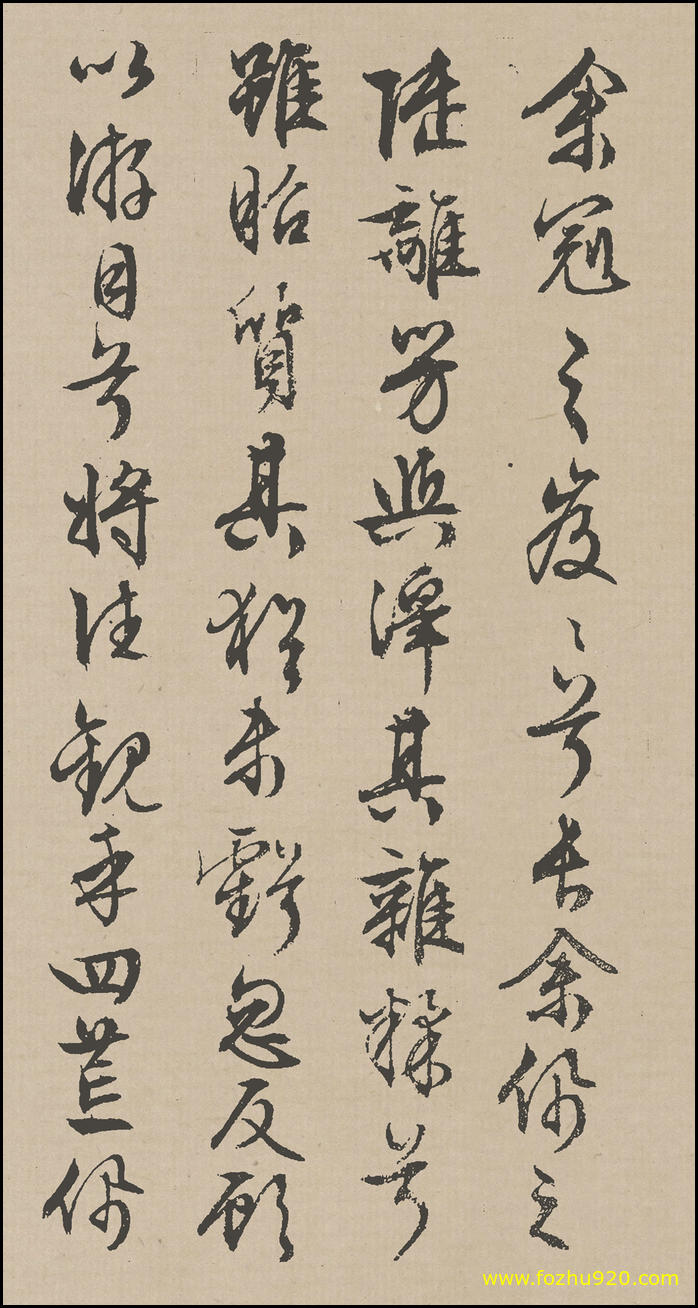 余冠之岌々兮長余佩之
陸離芳與澤其雜糅兮
雖昭質其猶未虧忽反顧
以游目兮將往觀乎四荒佩
www.fozhu920.com